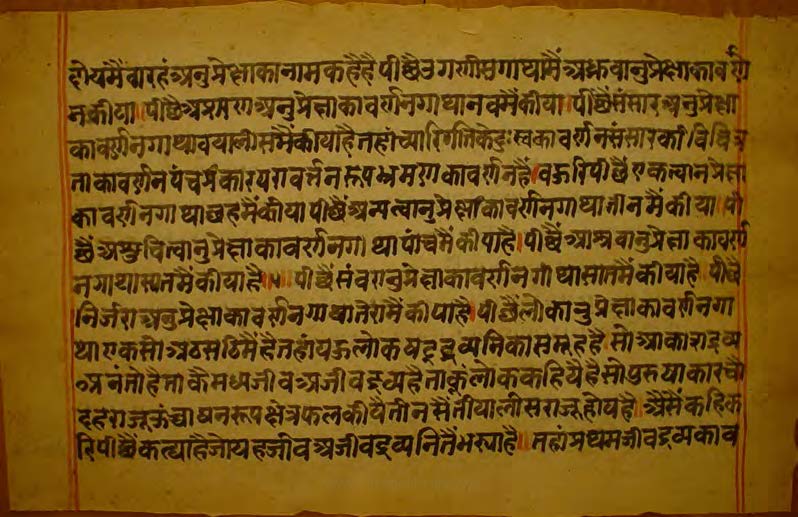 होयमैं बारहंअनुप्रेक्षाका नाम कहै है पीछै उगणीसगाथामैं अध्रुवानुप्रेक्षाका वर्ण
न कीया पीछै असरणअनुप्रेक्षाका वर्णन गाथा नवमैं कीया पीछैं संसारअनुप्रेक्षा
का वर्णन गाथा वयालीसमैं कीया है तहां च्यारिगतिके दुःखका वर्णन संसारकी विचित्र
ताका वर्णन पंचप्रकार परावर्त्तनरूप भ्रमणका वर्णन है वहुरि पीछैं एकत्वानुप्रेक्षा
का वर्णन गाथा छहमैं कीया पीछैं अन्यत्वानुप्रेक्षाका वर्णन गाथा तीनमैं कीया पी
छैं अशुचित्वानुप्रेक्षाका वर्णन गाथा पांचमैं कीया है पीछैं आश्रवानुप्रेक्षाका वर्ण
न गाथा सातमैं कीया है ॥ पीछैं संवरानुप्रेक्षाका वर्णन गाथा सातमैं कीया है पीछै
निर्जराअनुप्रेक्षाका वर्णन गाथा तेरामैं कीया है पीछैं लोकानुप्रेक्षाका वर्णन गा
था एकसो अठसठिमैं है तहां यहु लोक षट्द्रव्यनिका समूह है सो आकाशद्रव्य
अनंतो है ताकै मध्य जीव अजीवद्रव्य है ताकूं लोक कहिये है सो पुरुषाकार चौ
दह राजू ऊंचा घनरूप क्षेत्रफल कीयै तीनसैं तीयालीस राजू होय है अैसैं कहिक
रि पीछैं कह्या है जो यह जीव अजीवद्रव्यनितैं भर्‍या है तहां प्रथम जीवद्रव्यका व